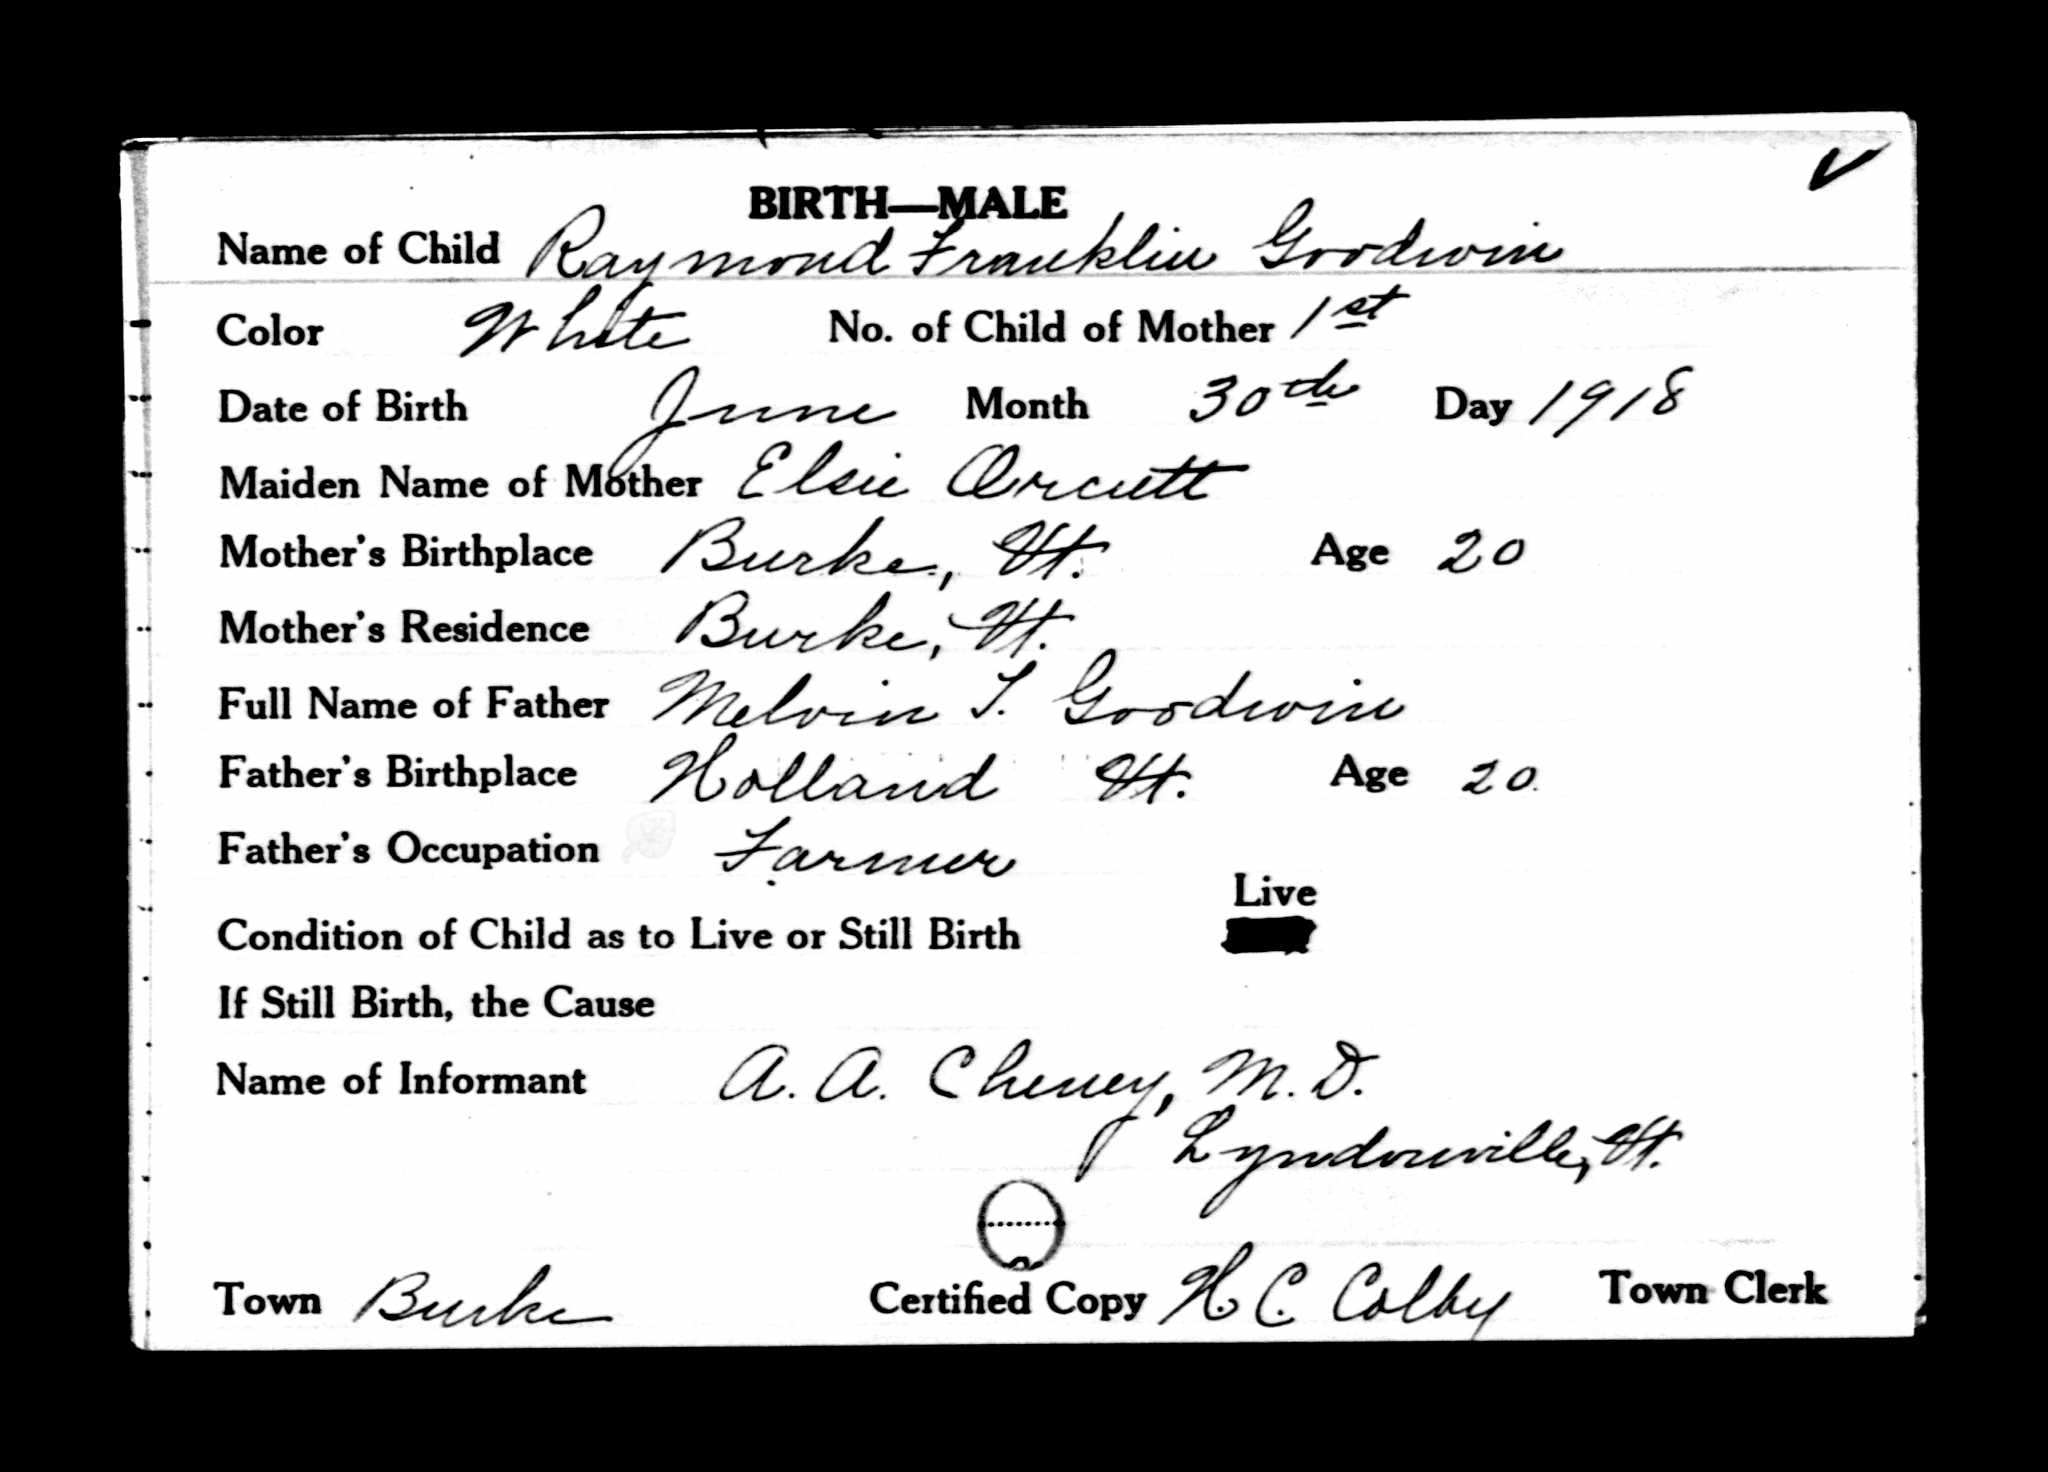 BIRTH—MALE
Name of Child Raymond Franklin Goodwin
Color White No. of Child of Mother 1st
Date of Birth June Month 30th Day 1918
Maiden Name of Mother Elsie Orcutt
Mother's Birthplace Burke, Vt. Age 20
Mother's Residence Burke, Vt.
Full Name of Father Melvin T. Goodwin
Father's Birthplace Holland Vt. Age 20.
Father's Occupation Farmer
Live
Condition of Child as to Live or Still Birth
If Still Birth, the Cause
Name of Informant A. A. Cheney, M. D.
Lyndonville, Vt.
Town Burke Certified Copy H. C. Colby Town Clerk